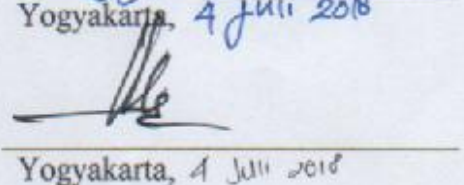 Yogyakarta, 4 Juli 2018
Yogyakarta, 4 Juli 2018